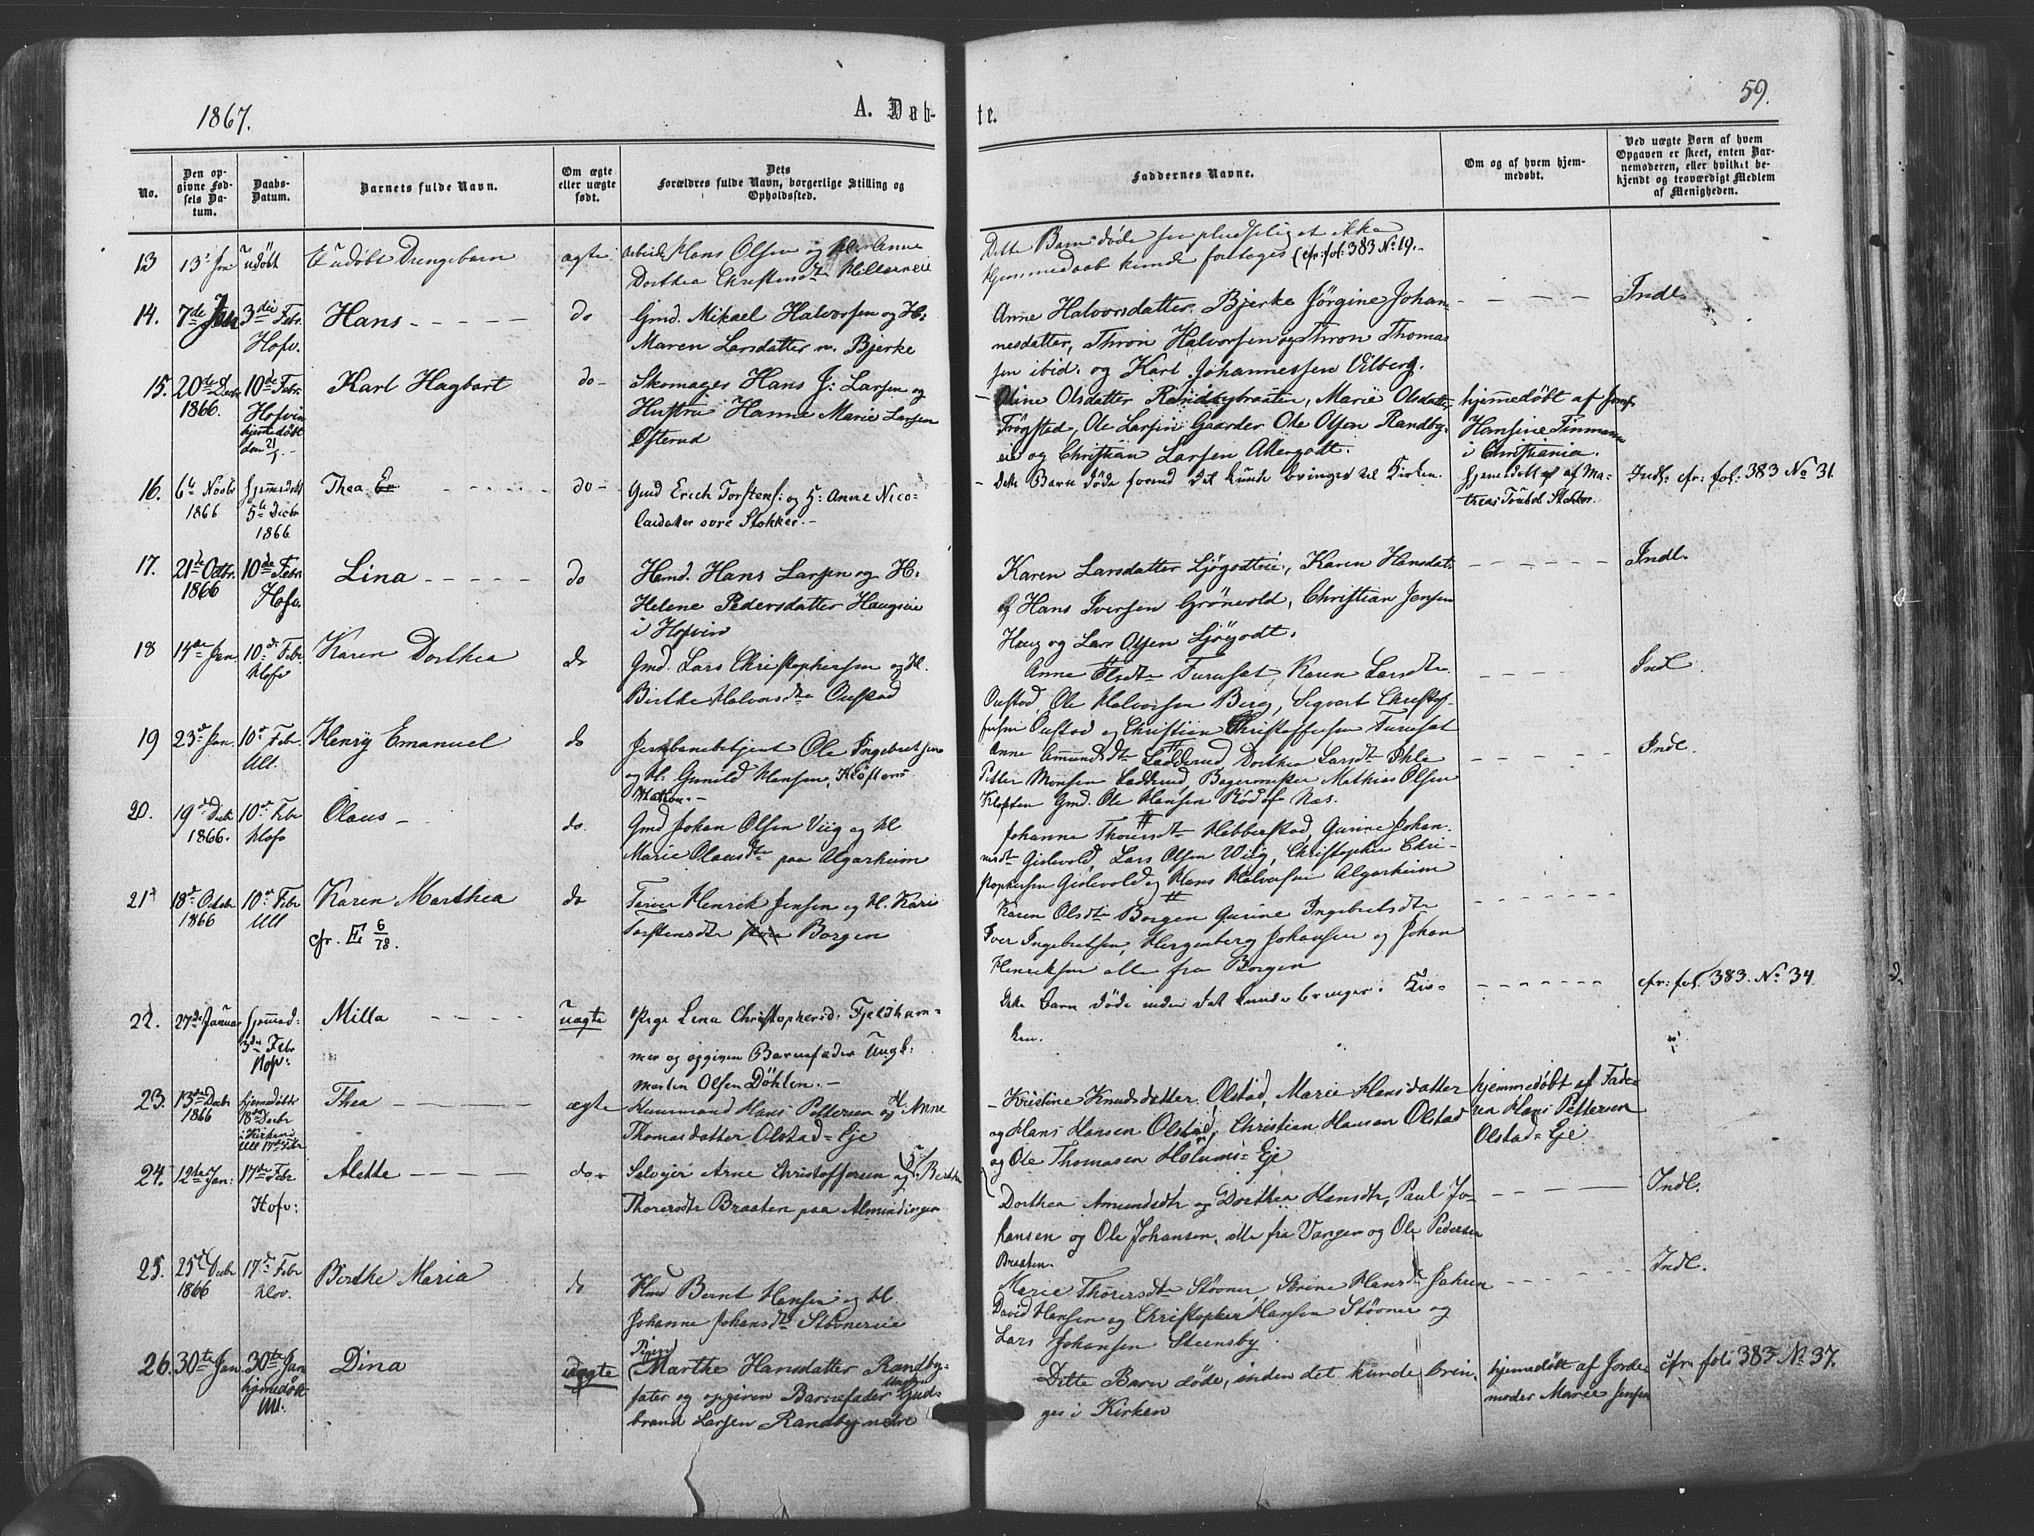 1867.
A. Døb-
te.
59.
No.
Den op-
givne Fød-
sels Da-
tum.
Daabs-
Datum.
Barnets fulde Navn.
Om ægte
eller uægte
født.
Dets
Forældres fulde Navn, borgerlige Stilling og
Opholdssted.
Faddernes Navne.
Om og af hvem hjem-
medøbt.
Ved uægte Børn af hvem
Opgaven er skeet, enten Bar-
nemoderen, eller hvilket be-
kjendt og troværdigt Medlem
af Menigheden.
13
13 Jan
udøbt
Et udøbt Drengebarn
ægte
Arbeidr Hans Olsen og Anne
Dorthea Christensdt
Dette Barn døde saa pludselig at ikke
Hjemmedaab kunde foretages (cfr: fol: 383 No 19.
14.
7de Jan
3die Febr.
Hofv.
Hans
do
Gmd. Mikael Halvorsen og H:
Maren Larsdatter n. Bjerke
Anne Halvorsdatter Bjerke Jörgine Johan-
nesdatter, Thron Halvorsen og Thron Thomas
sen ibid. og Karl Johannessen Vilberg.
Indl.
15.
20de Decbr
1866.
10de Febr.
Hofvin
hjemedøbt
den 21/1
Karl Hagbart
do
Skomager Hans J: Larsen og
Hustru Hanne Marie Larsen
Østerud
Oline Olsdatter Randbybraaten, Marie Olsdatter
Trögstad, Ole Larsen Gaarder Ole Olsen Randby-
eie og Christian Larsen Algergodt.
hjemmedøbt af Jomf.
Hansine Finmann
i Christiania.
16.
6te Novbr
1866
hjemmedøbt
5te Decbr
1866.
Thea
do
Gmd Erich Torstens: og H: Anne Nico-
laidatter øvre Stokker.
Dette Barn døde forend det kunde bringes til Kirken.
hjemedøbt af Ma-
thias Stokker.
Indl. cfr: fol: 383 No 31.
17.
21de Octbr.
1866
10de Febr
Hofv.
Lina
do
Hmd. Hans Larsen og H:
Helene Pedersdatter Haugseie
i Hofvin
Karen Larsdatter Ljögodteie, Karen Hansdat:
og Hans Iversen Grönvold, Christian Jensen
Haug og Lars Olsen Ljögodt.
Indl.
18
14de Jan
10de Febr
Hofv
Karen Dorthea
do
Gmd. Lars Christophersen og H.
Birthe Halvorsdtr Oustad
Anne Olsdtr Furuset, Karen Larsdtr
Oustad, Ole Halvorsen Berg, Sigvart Christof-
fersen Oustad og Christian Christoffersen Furuset
Indl
19
23de Jan
10de Febr.
Ull.
Henry Emanuel
do
Jernbanebetjent Ole Ingebretsen
og H. Gunild Hansen, Kløften
Station.
Anne Amundsdt Ladderud Dorthea Larsdt Ihle
Petter Monsen Ladderud, Bagermester Mathias Olsen
Kløften Gmd. Ole Hansen Röd af Næs.
Indl.
20.
19de Decbr
1866.
10de Febr
Hofv
Olaus
do.
Gmd Johan Olsen Viig og H
Marie Olausdtr paa Algarheim
Johanne Hebberstad, Gurine Johan-
nesdt Gislevold, Lars Olsen Viig, Christopher Chri-
stophersen Gislevold og Hans Halvorsen Algarheim
21
18de Octobr
1866
10de Febr
Ull
Karen Marthea
cfr. E 6/78.
do
Henrik Jensen og H. Kari
Torstensdtr Borgen
Karen Olsdtr Borgen Gurine Ingebretsdtr
Iver Ingebretsen, Hergenberg Johansen og Johan
Henriksen alle fra Borgen
22.
27de Januar
hjemmed:
3die Febr
Hofv:
Milla
Uægte
Pige Lena Christophersd: Fjeldham-
mer og opgiven Barnefader Ungk:
Martin Olsen Döhlen.
Dette barn döde inden det kunde bringes i Kir-
ken.
cfr: fol. 383. No 34.
23.
13de Decbr
1866
hjemedøbt
18de Decbr
i Kirken i
Ull 17de Febr
Thea
ægte
Huusmand Hans Pettersen og H. Anne
Thomasdatter Olstad-Eje
Kristine Knudsdatter Olstad, Marie Hansdatter
og Hans Hansen Olstad, Christian Hansen Olstad
og Ole Thomasen Holums-Eje
hjemmedøbt af Fade-
ren Hans Pettersen
Olstad-Eje
24.
12te Jan:
17de Febr
Hofv:
Alette
do
Selvejer Arne Christoffersen og H. Berthe
Thorersdtr Braaten paa Almindingen
Dorthea Amundsdtr og Dorthea Hansdtr, Paul Jo-
hansen og Ole Johansen, alle fra Vangen og Ole Pedersen
Braaten.
Indl.
25.
25de Decbr
1866
17de Febr
Hov.
Berthe Maria
do
Hmd Bernt Hansen og H
Johanne Johansdtr Stövnereie
Marie Thorersdtr Stövner, Hansdtr
David Hansen og Christopher Hansen Stövner og
Lars Johansen Steensby.
Indl.
26.
30te Jan
30te Jan
hjemedøbt
Ull.
Dina
uægte
Pigen
Marthe Hansdatter Randby-
sater og opgiven Barnefader Ungkr Gud-
brand Larsen Randby nedre
Dette Barn døde, inden det kunde brin-
ges i Kirken
hjemedøbt af Jorde-
moder Marie Jensen
cfr: fol: 383 No 37.